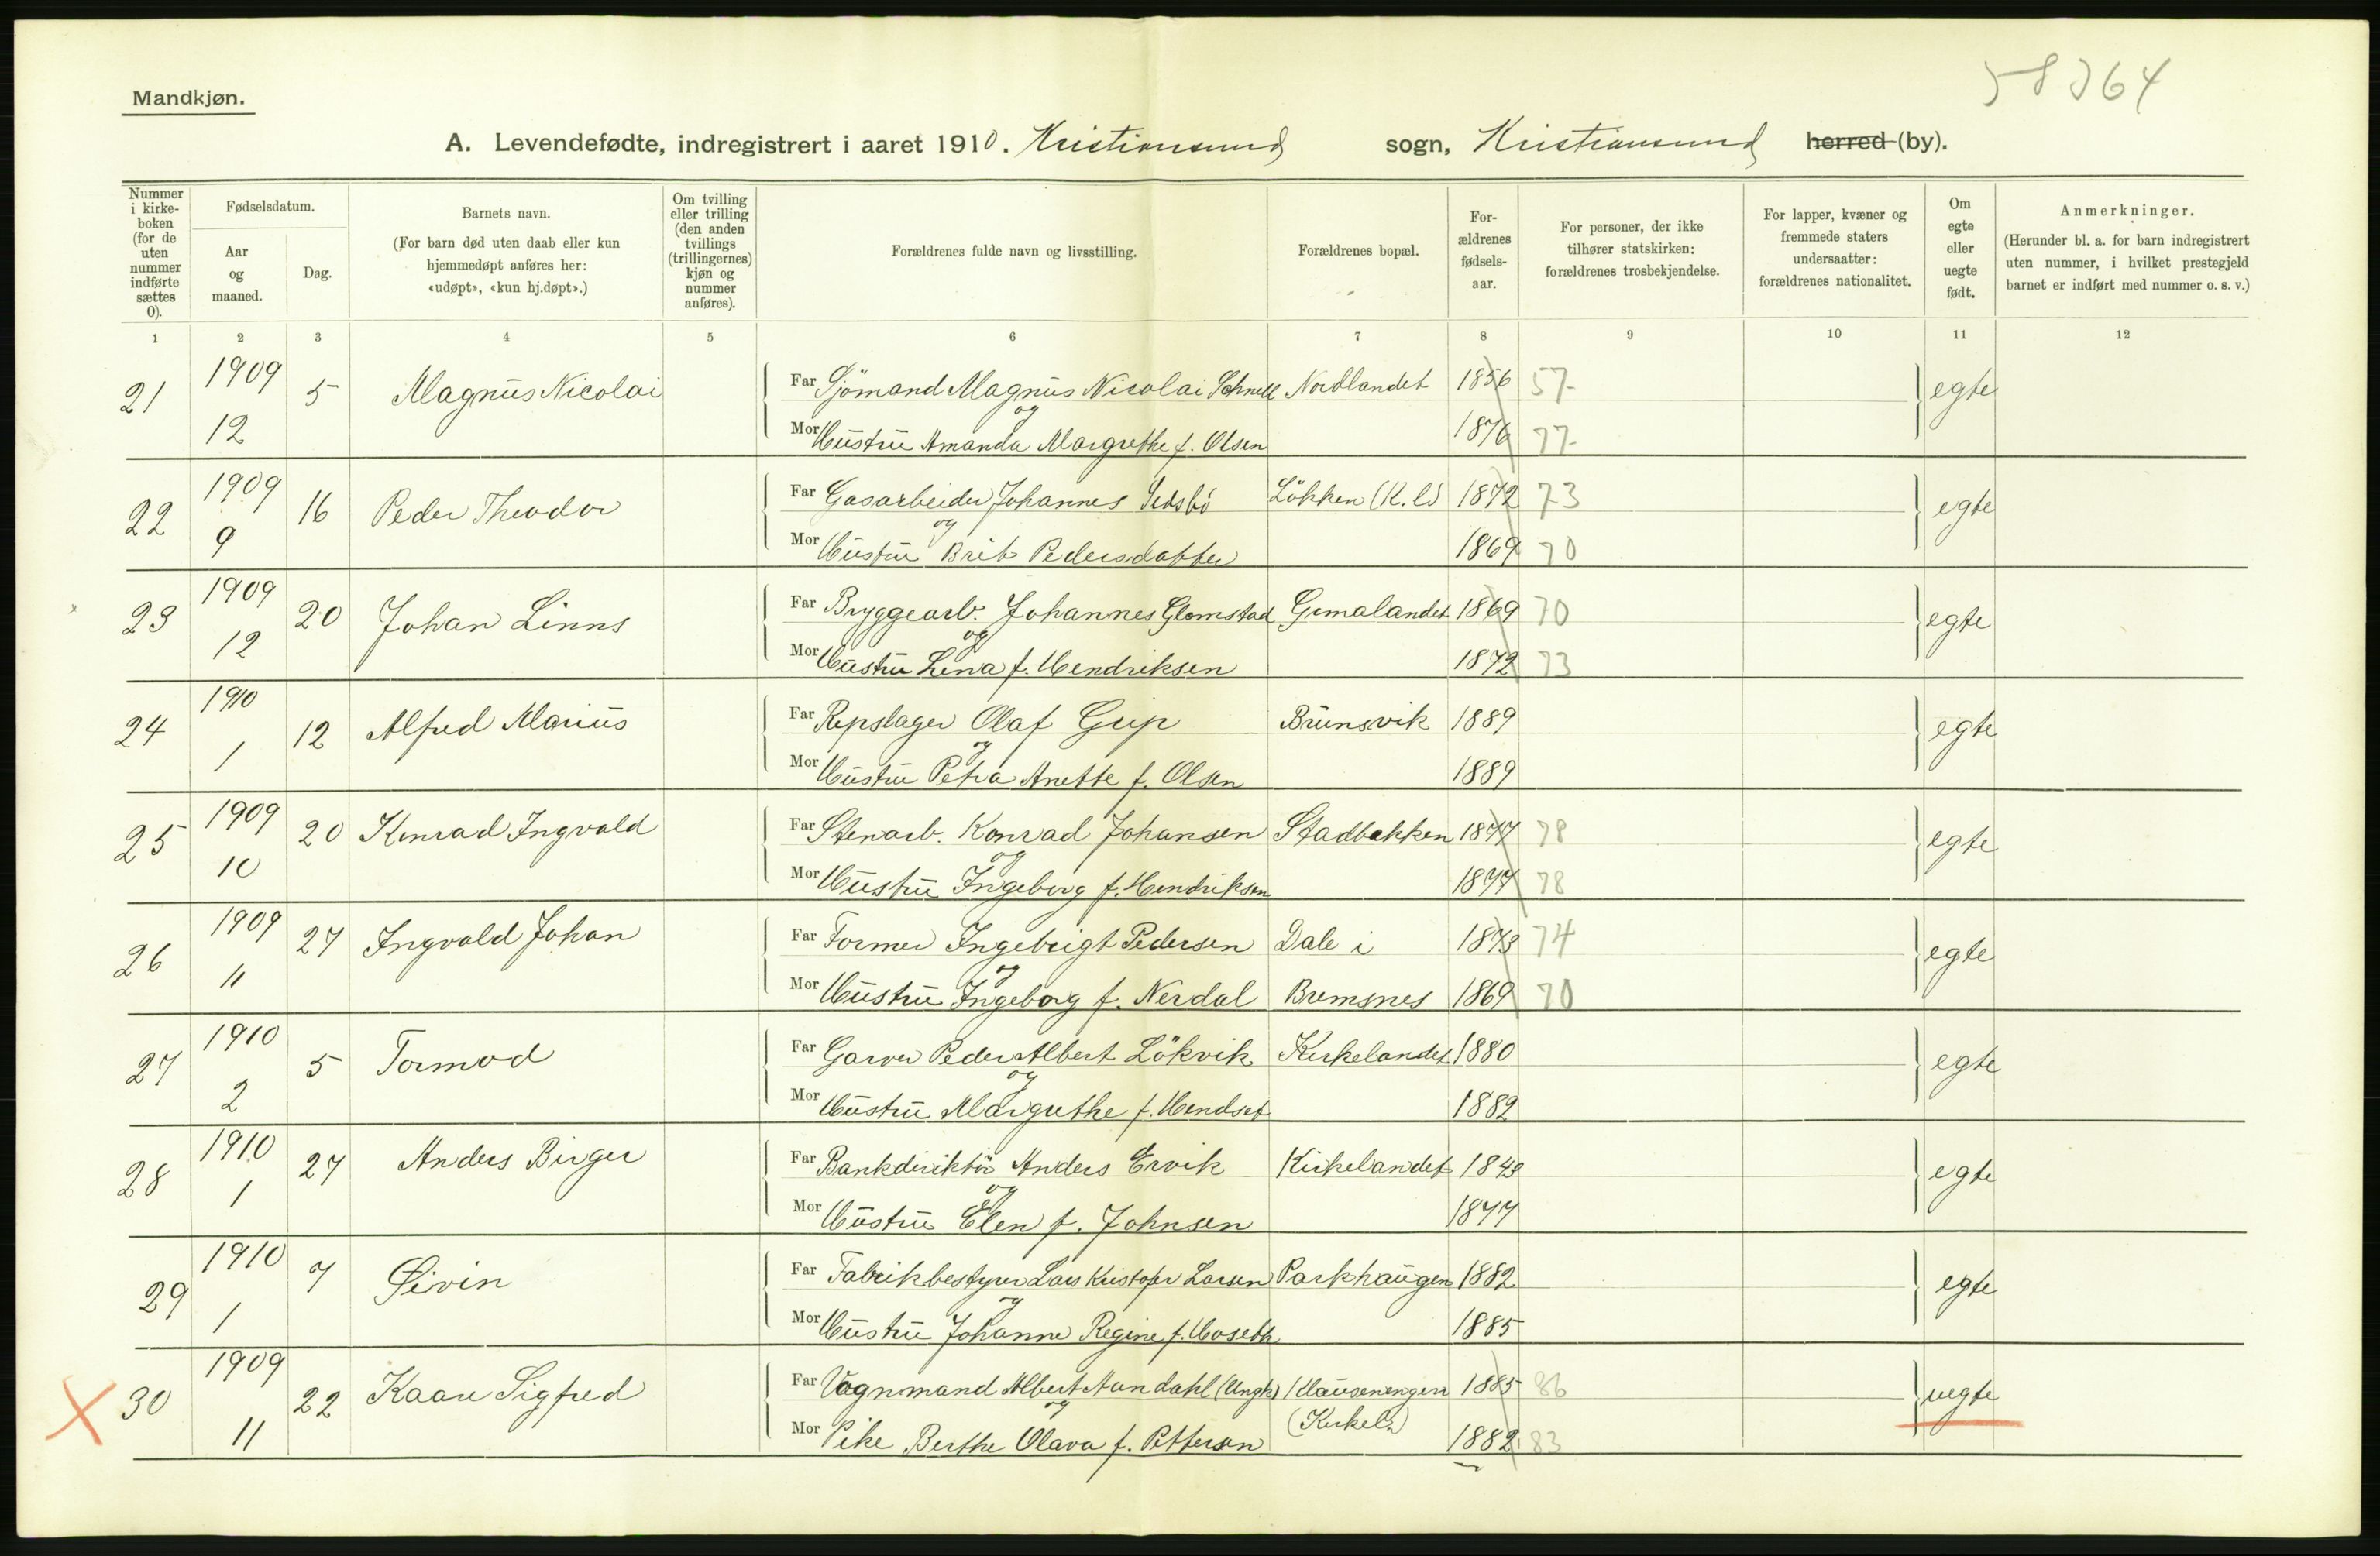 58364
Mandkjøn.
A. Levendefødte, indregistrert i aaret 1910. Kristiansund sogn, Kristiansund herred (by).
Nummer i kirke-boken (for de uten nummer indførte sættes 0).
Fødselsdatum.
Aar og maaned.
Dag.
Barnets navn.
(For barn død uten daab eller kun hjemmedøpt anføres her: «udøpt», «kun hj.døpt».)
Om tvilling eller trilling (den anden tvillings (trillingernes) kjøn og nummer anføres).
Forældrenes fulde navn og livsstilling.
Forældrenes bopæl.
For-ældrenes fødsels-aar.
For personer, der ikke tilhører statskirken: forældrenes trosbekjendelse.
For lapper, kvæner og fremmede staters undersaatter: forældrenes nationalitet.
Om egte eller uegte født.
Anmerkninger.
(Herunder bl. a. for barn indregistrert uten nummer, i hvilket prestegjeld barnet er indført med nummer o. s. v.)
1 2 3 4 5 6 7 8 9 10 11 12
21 1909 12 5 Magnus Nicolai Far Sjömand Magnus Nicolai Schnell Nordlandet 1856 57- egte
og
Mor Hustru Amanda Margrethe f. Olsen 1876 77-
22 1909 9 16 Peder Theodor Far Gasarbeider Johannes Løkken (K.l) 1872 73 egte
og
Mor Hustru Brit Pedersdatter 1869 70
23 1909 12 20 Johan Linns Far Bryggearb. Johannes Glomstad Gomalandet 1869 70 egte
og
Mor Hustru Lena f. Hendriksen 1872 73
24 1910 1 12 Alfred Marius Far Repslager Olaf Grip Brunsvik 1889 egte
og
Mor Hustru Petra Anette f. Olsen 1889
25 1909 10 20 Konrad Ingvald Far Stenarb. Konrad Johansen Stadbakken 1877 78 egte
og
Mor Hustru Ingeborg f. Hendriksen 1877 78
26 1909 11 27 Ingvald Johan Far Former Ingebrigt Pedersen Dale i 1873 74 egte
og
Mor Hustru Ingeborg f. Nerdal Bremsnes 1869 70
27 1910 2 5 Tormod Far Garver Peder Albert Lökvik Kirkelandet 1880 egte
og
Mor Hustru Margrethe f. Hendset 1882
28 1910 1 27 Anders Birger Far Bankdirektör Anders Ervik Kirkelandet 1843 egte
og
Mor Hustru Elen f. Johnsen 1877
29 1910 1 7 Øivin Far Fabrikbestyrer Lars Kristofer Larsen Parkhaugen 1882 egte
og
Mor Hustru Johanne Regine f. Hoseth 1885
X 30 1909 11 22 Kaare Sigfred Far Vognmand Albert Nundahl (Ungk) Clausenengen 1885 86 uegte
og (Kirkel.)
Mor Pike Berthe Olava f. Pettersen 1882 83